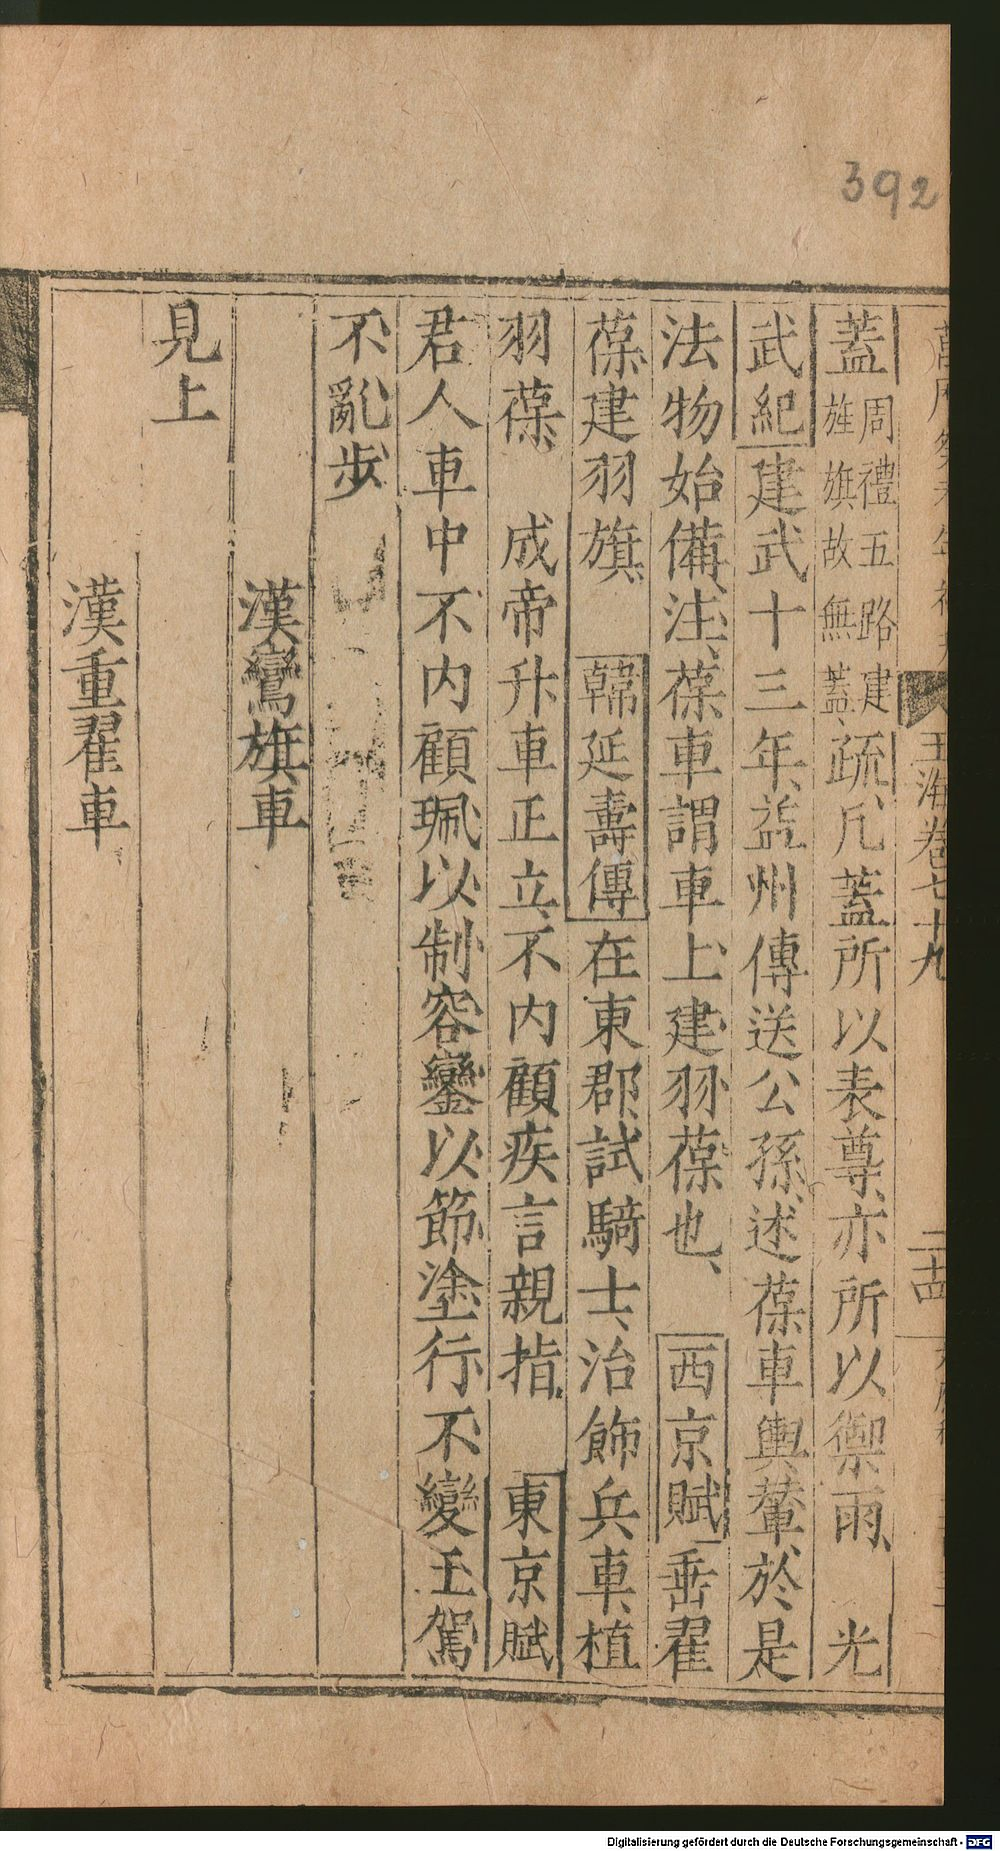 392
玉海卷七十九
蓋周禮五路建旌旗故無蓋疏凡蓋所以表尊亦所以禦雨 光
武紀建武十三年益州傳送公孫述葆車輿輦於是
法物始備注葆車謂車上建羽葆也 西京賦垂翟
葆建羽旗 韓延壽傳在東郡試騎士治飾兵車植
羽葆 成帝升車正立不内顧疾言親指 東京賦
君人車中不内顧珮以制容鑾以節塗行不變玉駕
不亂步
漢鸞旗車
見上
漢重翟車
Digitalisierung gefördert durch die Deutsche Forschungsgemeinschaft - DFG